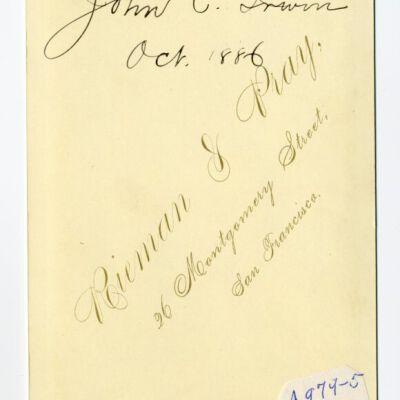 John C. Irwin
Oct. 1886
Rieman & Pray,
26 Montgomery Street,
San Francisco.
A979-5